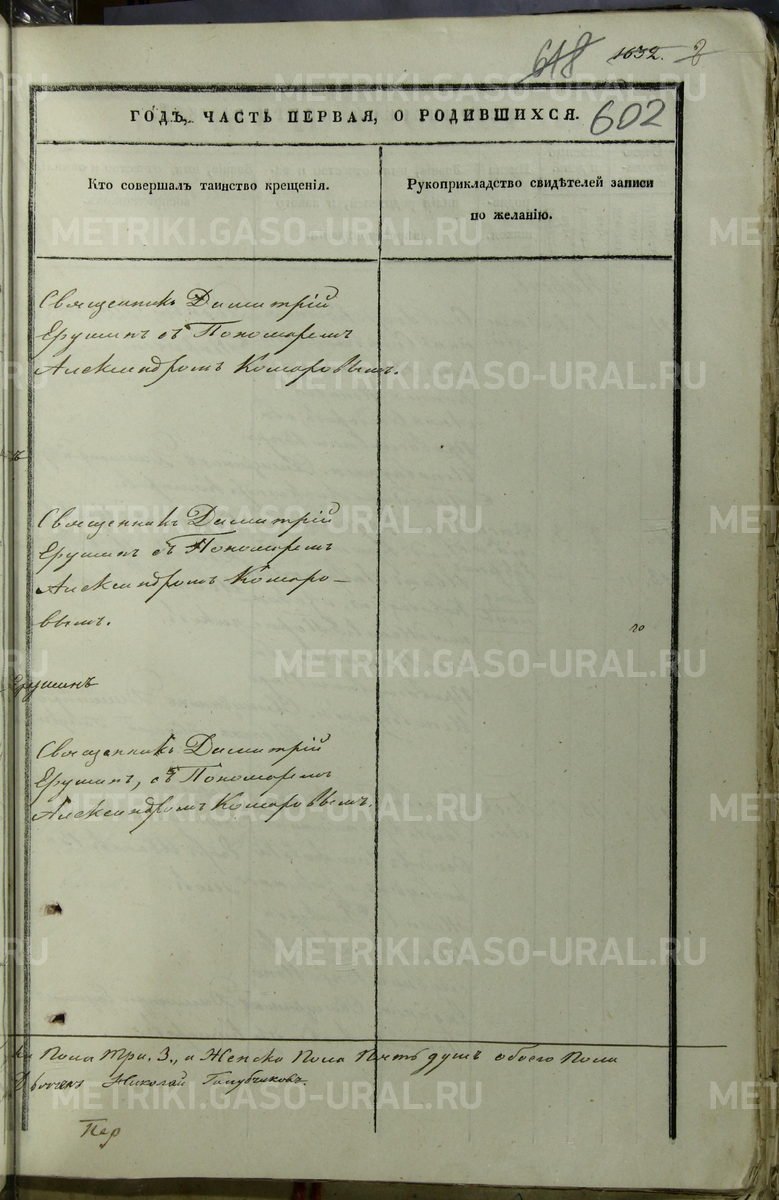 618 1632. 2
ГОДЪ, ЧАСТЬ ПЕРВАЯ, О РОДИВШИХСЯ. 602
Кто совершалъ таинство крещенія.
Рукоприкладство свидѣтелей записи
по желанію.
Священникъ Димитрій
Ерушинъ съ Пономаремъ
Александромъ Комаровымъ.
Священникъ Димитрій
Ерушинъ съ Пономаремъ
Александромъ Комаро-
вымъ.
Ерушинъ
Священникъ Димитрій
Ерушинъ, съ Пономаремъ
Александромъ Комаровымъ.
Пола три. 3., и Женска Пола Пять душъ обоего Пола
Николай Голубчиковъ.
Пер
METRIKI.GASO-URAL.RU